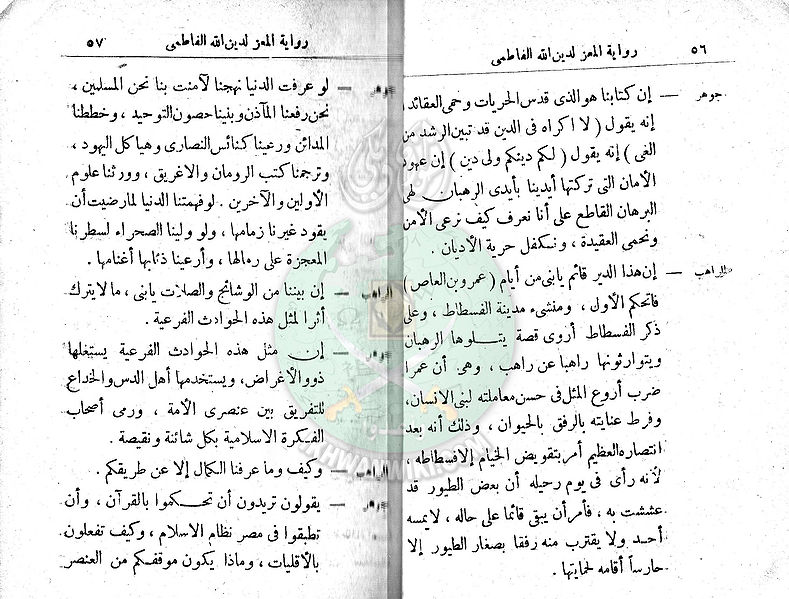 ٥٦ رواية المعز لدين الله الفاطمى
جوهر — إن كتابنا هو الذى قدس الحريات وحمى العقائد ،
إنه يقول ( لا اكراه فى الدين قد تبين الرشد من
الغى ) إنه يقول ( لكم دينكم ولى دين ) إن عهود
الأمان التى تركتها أيدينا بأيدى الرهبان لهى
البرهان القاطع على أنا نعرف كيف نرعى الأمن
ونحمى العقيدة ، ونكفل حرية الأديان .
الراهب — إن هذا الدير قائم يابنى من أيام ( عمرو بن العاص )
فاتحكم الأول ، ومنشىء مدينة الفسطاط ، وعلى
ذكر الفسطاط أروى قصة يتلوها الرهبان
ويتوارثونها راهبا عن راهب ، وهى أن عمرا
ضرب أروع المثل فى حسن معاملته لبنى الانسان ،
وفرط عنايته بالرفق بالحيوان ، وذلك أنه بعد
انتصاره العظيم أمر بتقويض الخيام إلا فسطاطه ،
لأنه رأى فى يوم رحيله أن بعض الطيور قد
عششت به ، فأمر أن يبقى قائما على حاله ، لا يمسه
أحد ولا يقترب منه رفقا بصغار الطيور إلا
حارسا أقامه لحمايتها .
رواية المعز لدين الله الفاطمى ٥٧
جوهر — لو عرفت الدنيا نهجنا لآمنت بنا نحن المسلمين ،
نحن رفعنا المآذن وبنينا حصون التوحيد ، وخططنا
المدائن ورعينا كنائس النصارى وهياكل اليهود ،
وترجمنا كتب الرومان والاغريق ، وورثنا علوم
الأولين والآخرين . لو فهمتنا الدنيا لما رضيت أن
يقود غيرنا زمامها ، ولو ولينا الصحراء لسطرنا
المعجزة على رمالها ، وأرعينا ذئابها أغنامها .
الراهب — إن بيننا من الوشائج والصلات يابنى ، ما لا يترك
أثرا لمثل هذه الحوادث الفرعية .
جوهر — إن مثل هذه الحوادث الفرعية يستغلها
ذوو الأغراض ، ويستخدمها أهل الدس والخداع
للتفريق بين عنصرى الأمة ، ورمى أصحاب
الفكرة الاسلامية بكل شائنة ونقيصة .
الراهب — وكيف وما عرفنا الكمال إلا عن طريقكم .
جوهر — يقولون تريدون أن تحكموا بالقرآن ، وأن
تطبقوا فى مصر نظام الاسلام ، وكيف تفعلون
بالأقليات ، وماذا يكون موقفكم من العنصر